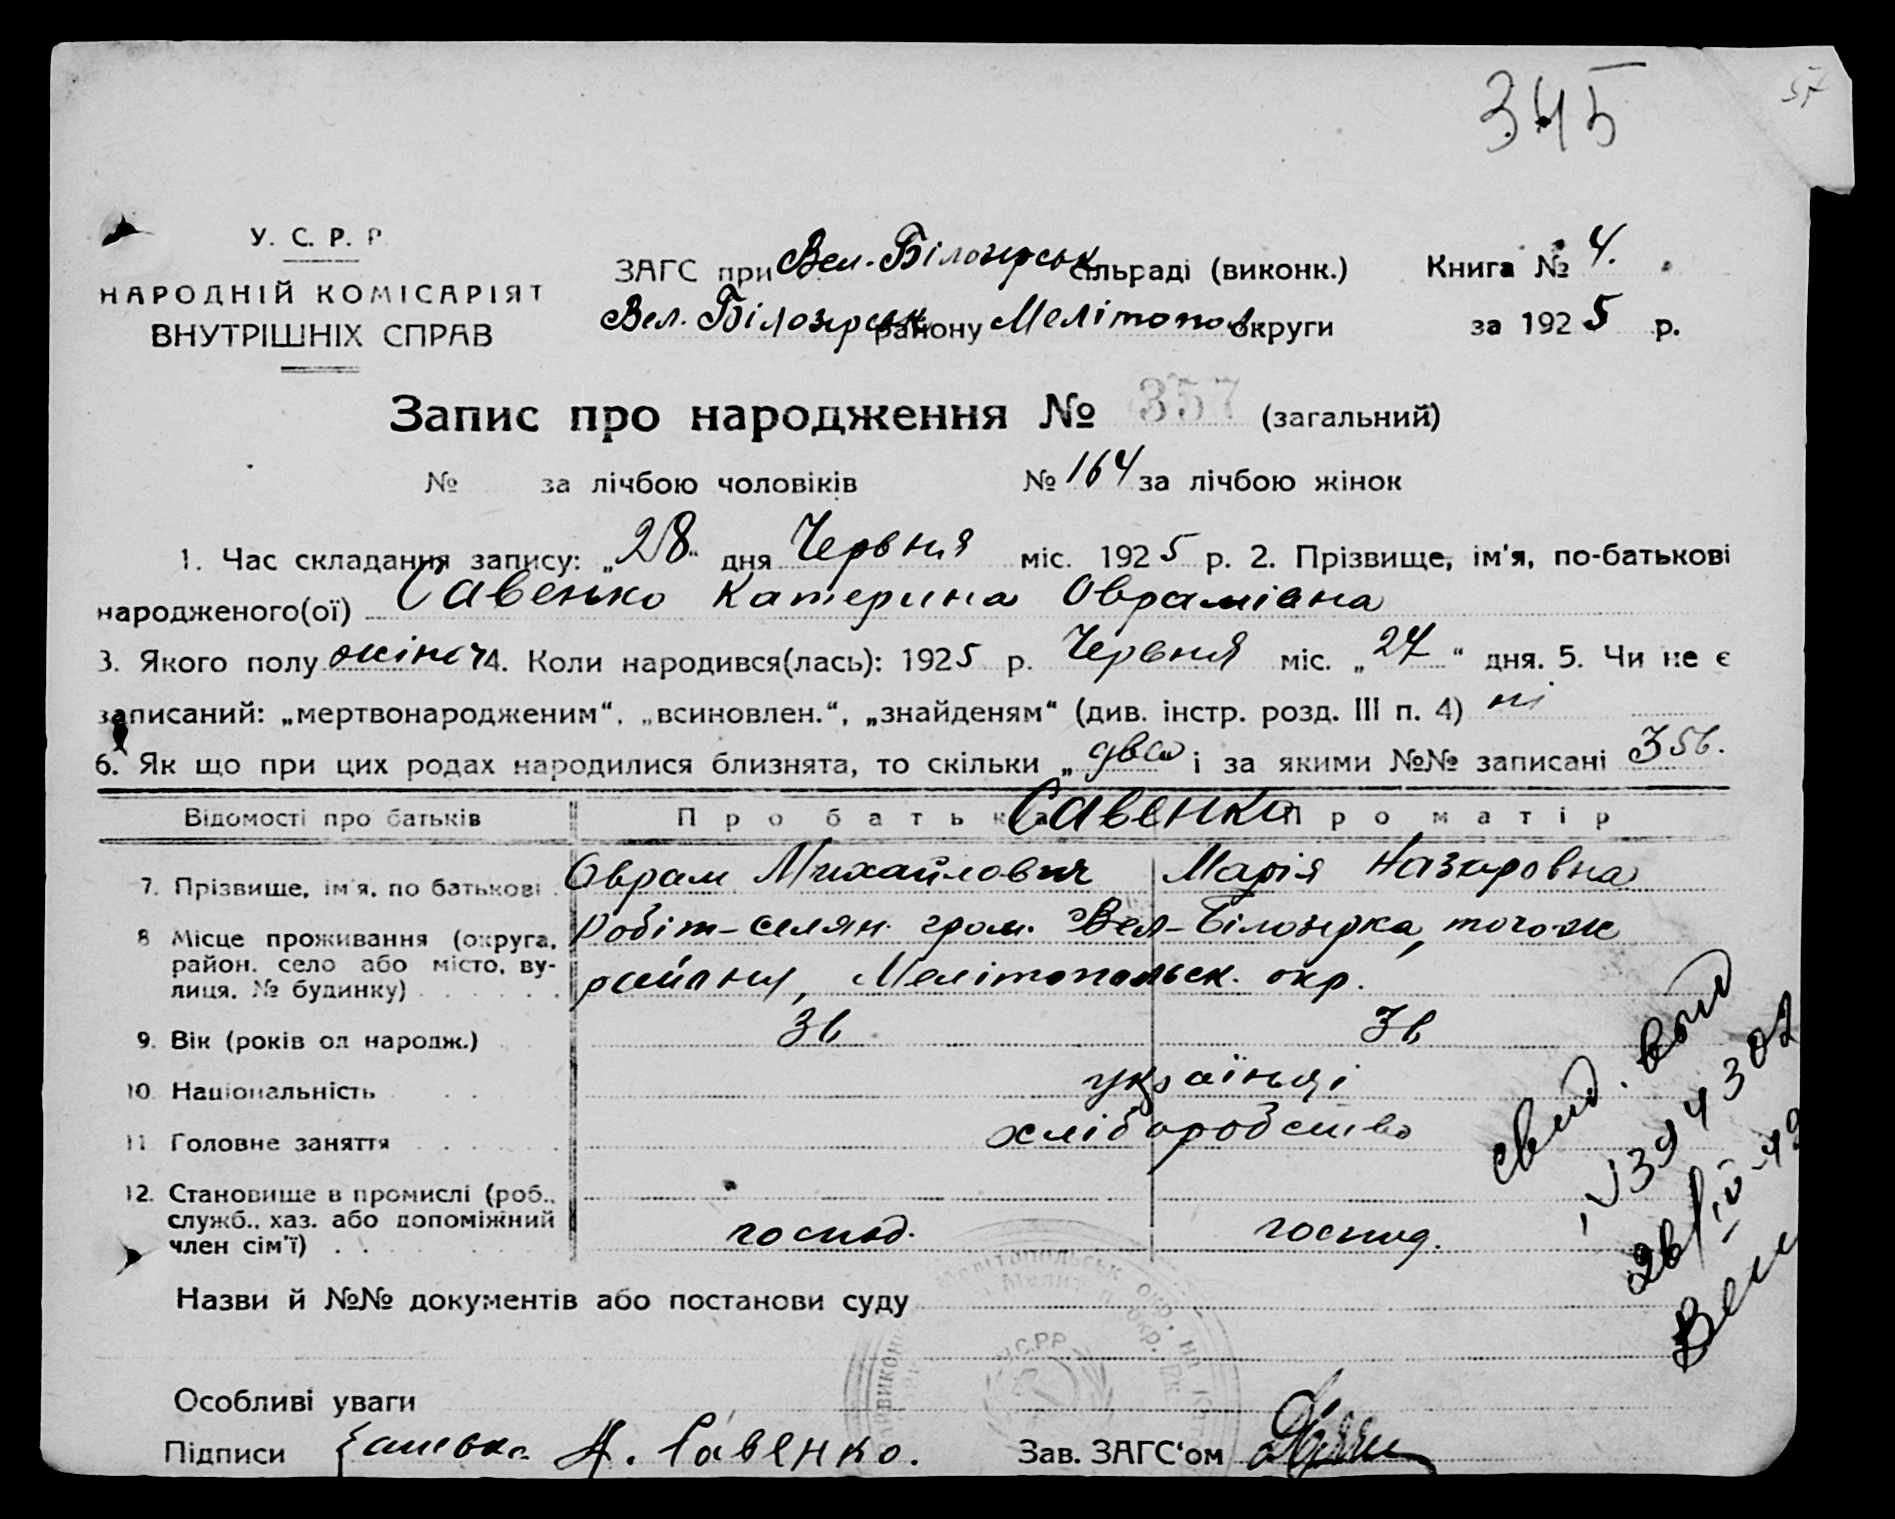 345
57
У. С. Р. Р.
НАРОДНІЙ КОМІСАРІЯТ
ВНУТРІШНІХ СПРАВ
ЗАГС при Вел.-Білозирськ сільраді (виконк.) Книга № 4.
Вел. Білозирськ району Мелітопол. округи за 1925 р.
Запис про народження № 357 (загальний)
№ за лічбою чоловіків № 164 за лічбою жінок
1. Час складання запису: „28“ дня Червня міс. 1925 р. 2. Прізвище, ім'я, по-батькові
народженого(ої) Савенко Катерина Оврамівна
3. Якого полу жіноч 4. Коли народився(лась): 1925 р. Червня міс. „27“ дня. 5. Чи не є
записаний: „мертвонародженим“, „всиновлен.“, „знайденям“ (див. інстр. розд. III п. 4) ні
6. Як що при цих родах народилися близнята, то скільки „ два і за якими №№ записані 356.
Відомості про батьків Про батька Савенко Про матір
7. Прізвище, ім'я, по батькові Оврам Михайлович Марія Назаровна
8 Місце проживання (округа, Робіт-селян. гром. Вел-Білозирка, того-ж
район, село або місто, ву-
лиця, № будинку) району, Мелітопольськ. окр.
9. Вік (років од народж.) 36 36
10. Національність українці
11 Головне заняття хліборобство
12. Становище в промислі (роб.,
служб., хаз. або допоміжний
член сім'ї) господ. господ.
Назви й №№ документів або постанови суду
Мелітопольськ окр.
У.С.Р.Р
Особливі уваги
Підписи А. Савенко. Зав. ЗАГС'ом
свид. выд